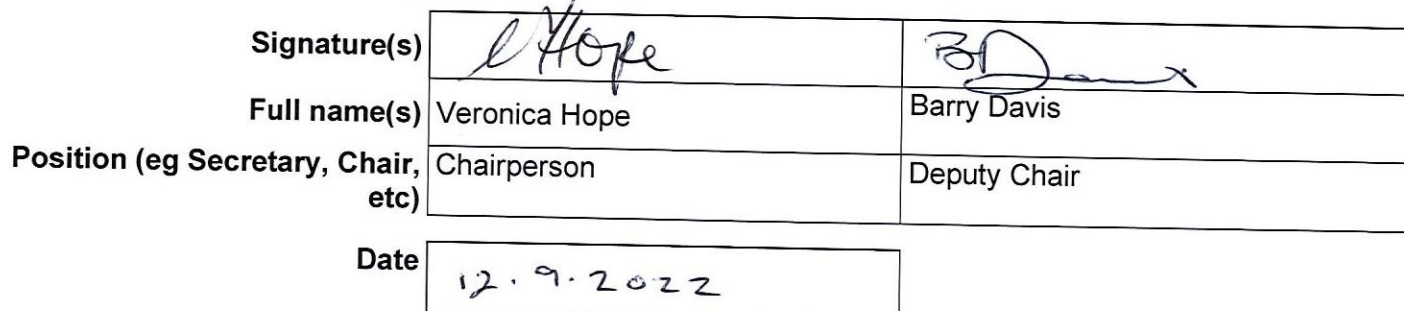 Signature(s) VHope BDavis
Full name(s) Veronica Hope Barry Davis
Position (eg Secretary, Chair, Chairperson Deputy Chair
etc)
Date 12.9.2022